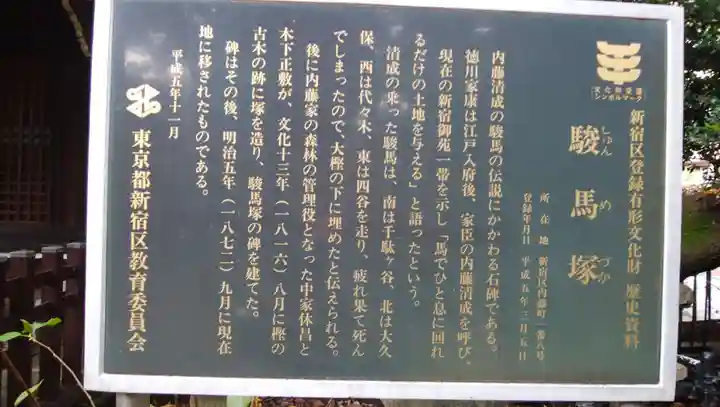 文化財愛護
シンボルマーク
新宿区登録有形文化財 歴史資料
駿馬塚
しゅんめづか
所在地 新宿区内藤町一番八号
登録年月日 平成五年三月五日
内藤清成の駿馬の伝説にかかわる石碑である。
徳川家康は江戸入府後、家臣の内藤清成を呼び、
現在の新宿御苑一帯を示し「馬でひと息に回れ
るだけの土地を与える」と語ったという。
清成の乗った駿馬は、南は千駄ヶ谷、北は大久
保、西は代々木、東は四谷を走り、疲れ果て死ん
でしまったので、大樫の下に埋めたと伝えられる。
後に内藤家の森林の管理役となった中家休昌と
木下正敷が、文化十三年（一八一六）八月に樫の
古木の跡に塚を造り、駿馬塚の碑を建てた。
碑はその後、明治五年（一八七二）九月に現在
地に移されたものである。
平成五年十一月
東京都新宿区教育委員会